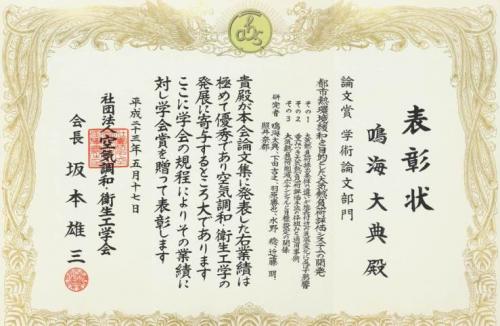 表彰状
鳴海大典殿
論文賞 学術論文部門
都市熱環境緩和を目的とした大気熱負荷評価システムの開発
その1
その2
その3
研究者 鳴海大典、下田吉之、羽原勝也、水野 稔、近藤 明、
照井奈都
貴殿が本会論文集に発表した右業績は
極めて優秀であり空気調和・衛生工学の
発展に寄与するところ大であります
ここに学会の規程によりその業績に
対し学会賞を贈って表彰します
平成二十三年五月十七日
社団法人空気調和・衛生工学会
会長 坂本雄三